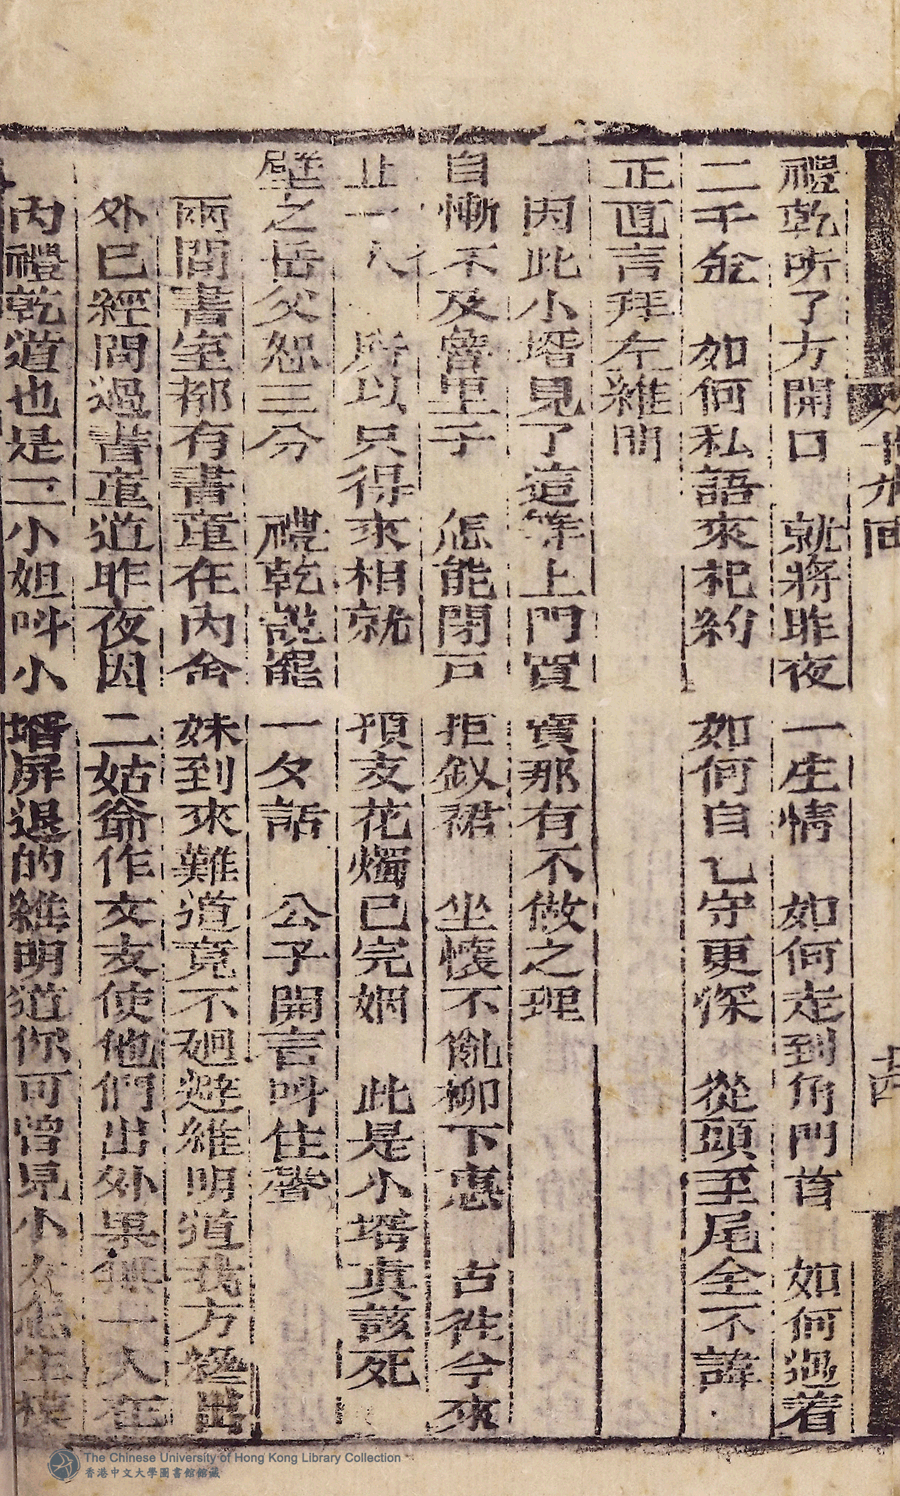 禮乾听了方開口　就將昨夜一庄情　如何走到角門首　如何遇着
二千金　如何私語來杞約　如何自乚守更深　從頭至尾全不諱
正直言拜左維明
因此小壻見了這等上門買賣那有不做之理
自慚不及魯里子　怎能閉戸拒釵裙　坐懷不亂柳下惠　古徃今來
止一人　所以只得來相就　預支花燭已完姻　此是小壻真該死
望之岳父恕三分　禮乾說罷一夕話　公子開言呌住聲
兩間書室都有書童在內舍妹到來難道竟不廻避維明道我方纔出
外已經問過書童道昨夜因二姑爺作文友使他們出外果無一人在
內禮乾道也是二小姐呌小壻屏退的維明道你可曾見小女怎生模
回
十四
The Chinese University of Hong Kong Library Collection
香港中文大學圖書館館藏